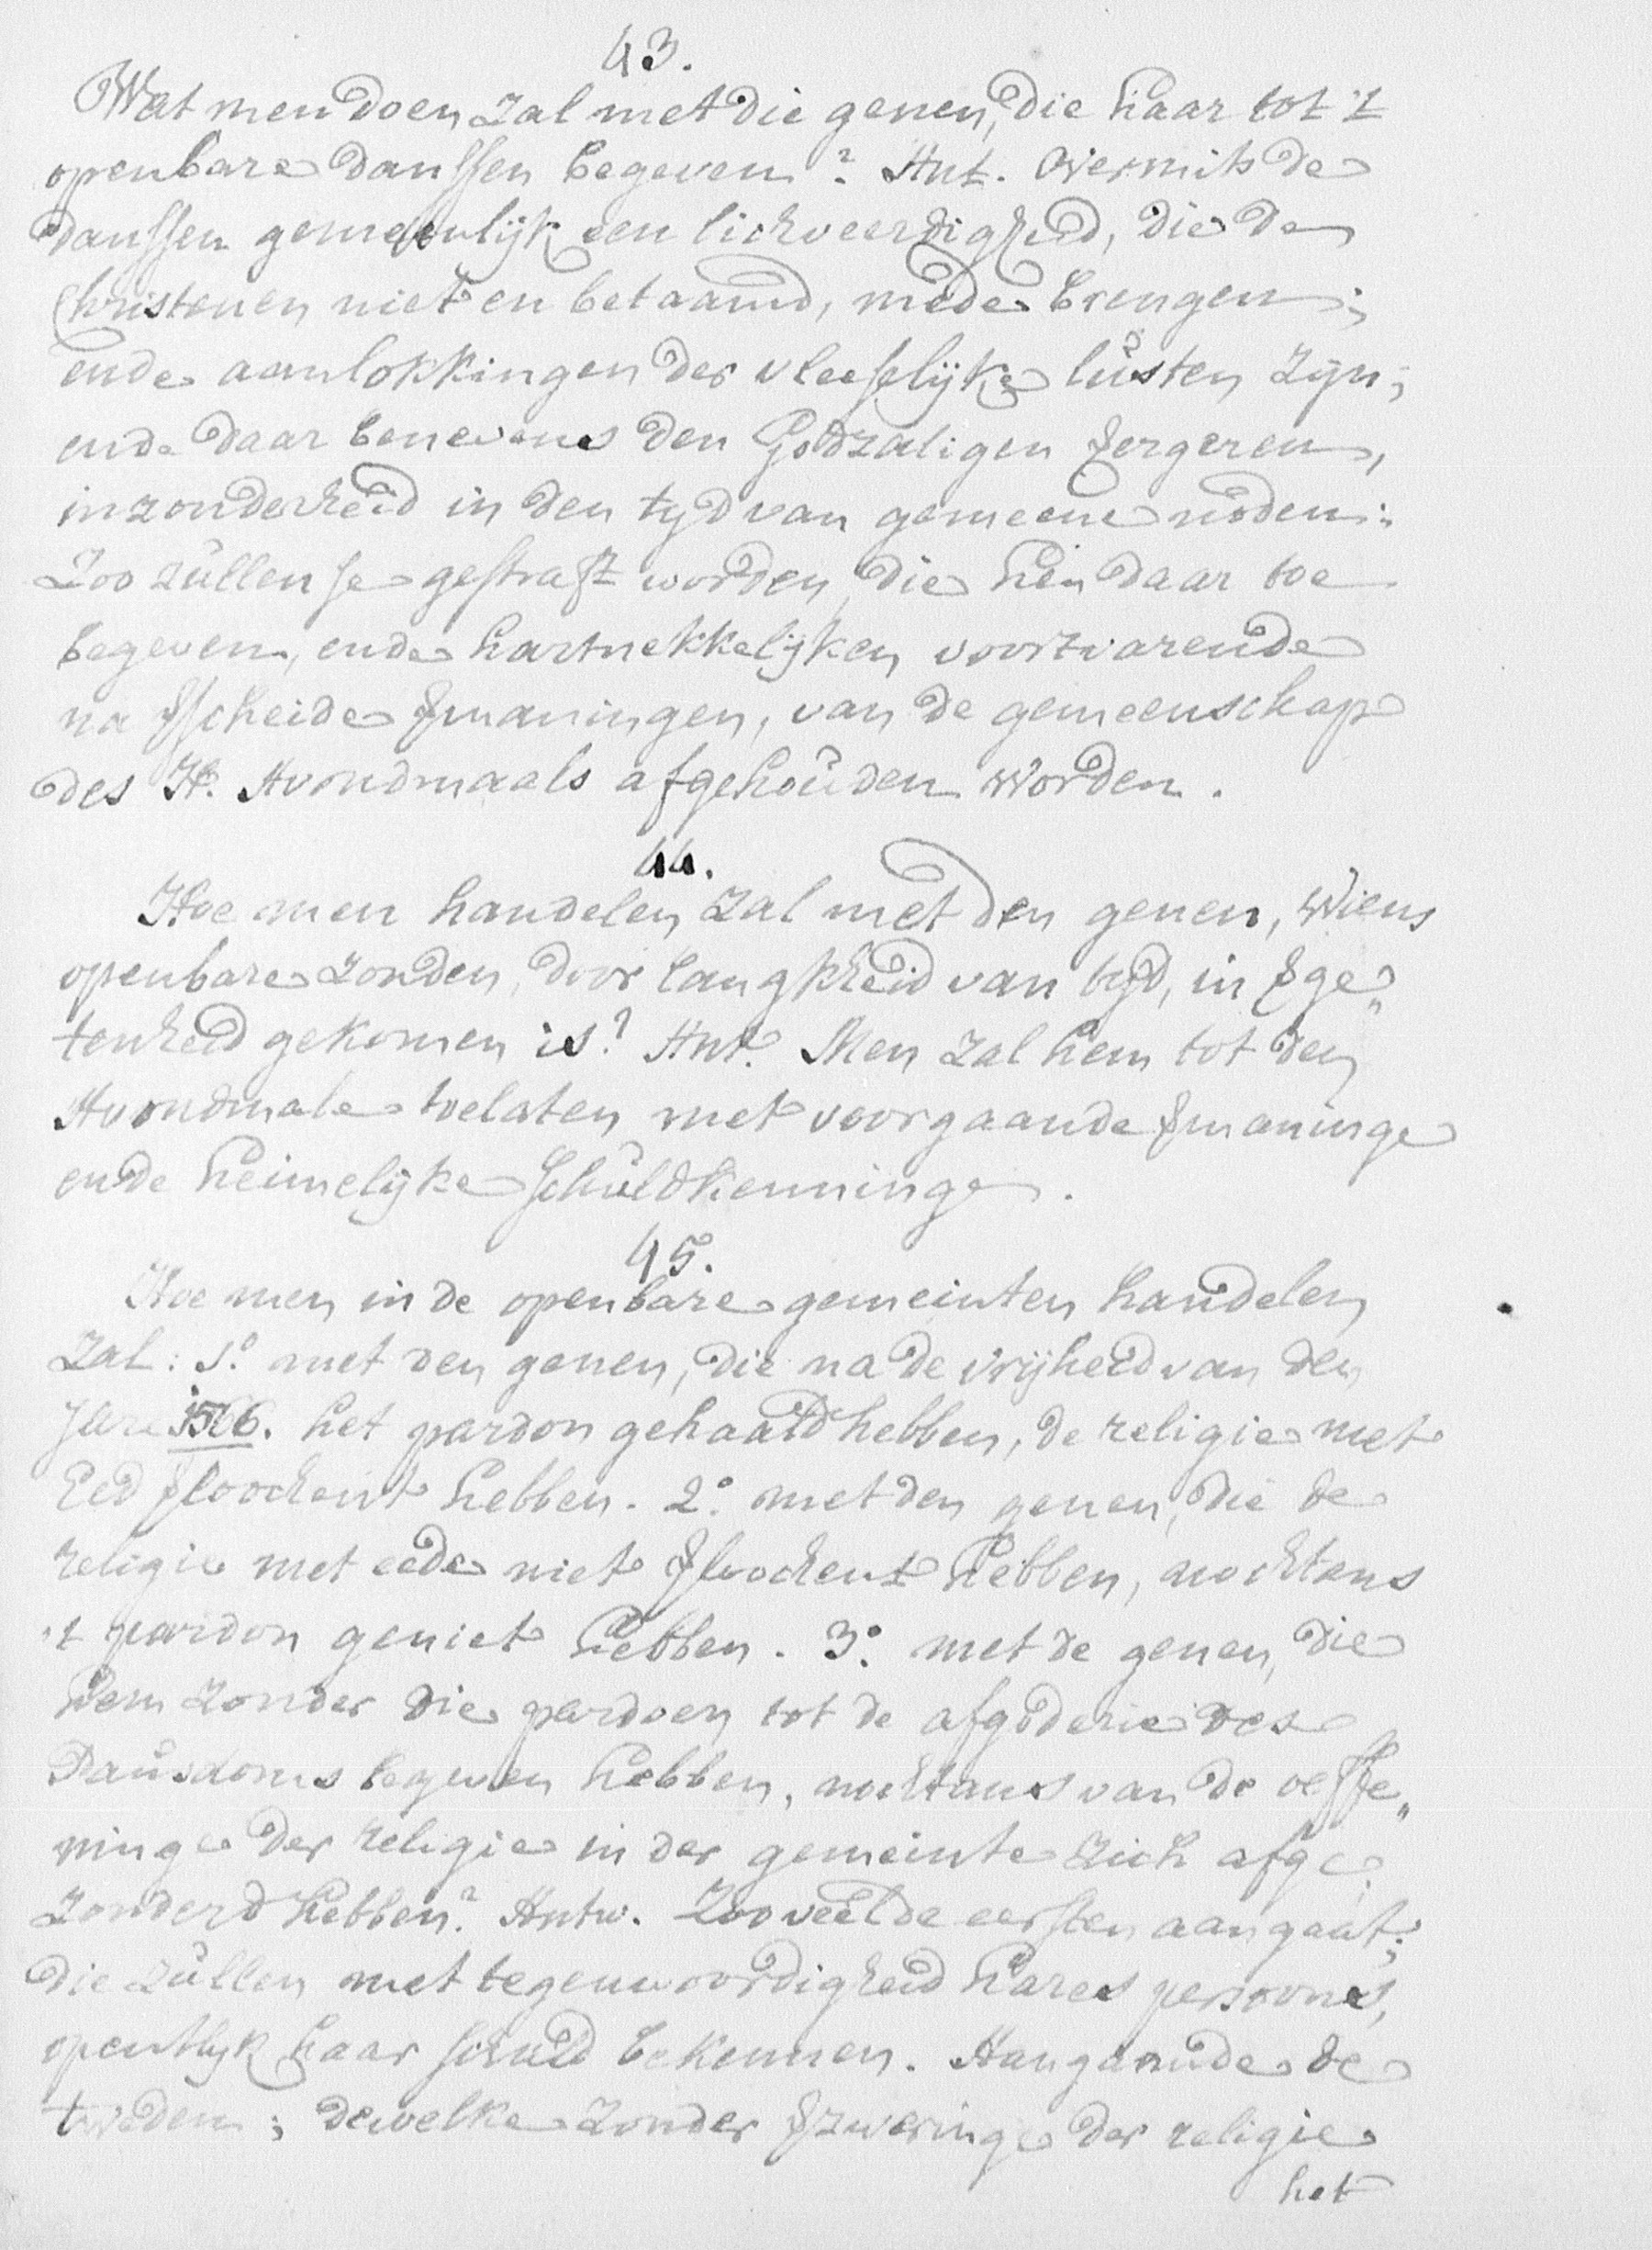 43.
Wat men doen zal met die genen, die haar tot 't
openbare danssen begeven? Ant. Overmits de
danssen gemeenlijk een lichveerdigheid, die den
Christenen niet en betaamd, mede brengen;
ende aanlokkingen der vleeselijke lusten zijn;
ende daar benevens den Godzaligen ergeren,
inzonderheid in den tyd van gemeene noden:
Zoo zullen se gestraft worden, die hen daar toe
begeven, ende hartnekkelijken voortvarende
na verscheide vermaningen, van de gemeenschap
des H. Avondmaals afgehouden worden.
44.
Hoe men handelen zal met den genen, wiens
openbare zonden, door langkheid van tyd, in verge„
tenheid gekomen is? Ant. Men zal hem tot den
Avondmale toelaten met voorgaande vermaninge
ende heimelijke schuldkenninge.
45.
Hoe men in de openbare gemeinten handelen
zal: 1º. met den genen, die na de vrijheid van den
Jare 1566. het pardon gehaald hebben, de religie met
Eed verloochent hebben. 2º. met den genen, die de
religie met eede niet verloochent hebben, nochtans
't pardon geniet hebben. 3º. met de genen, die
hem zonder die pardoen tot de afgoderie des
Pausdoms begeven hebben, nochtans van de oeffe„
ninge der religie in der gemeinte zich afge„
zonderd hebben? Antw. Zoo veel de eersten aangaat;
die zullen met tegenwoordigheid hares persoons,
opentlyk haar schuld bekennen. Aangaande de
tweden; dewelke zonder verzweringe der religie
het